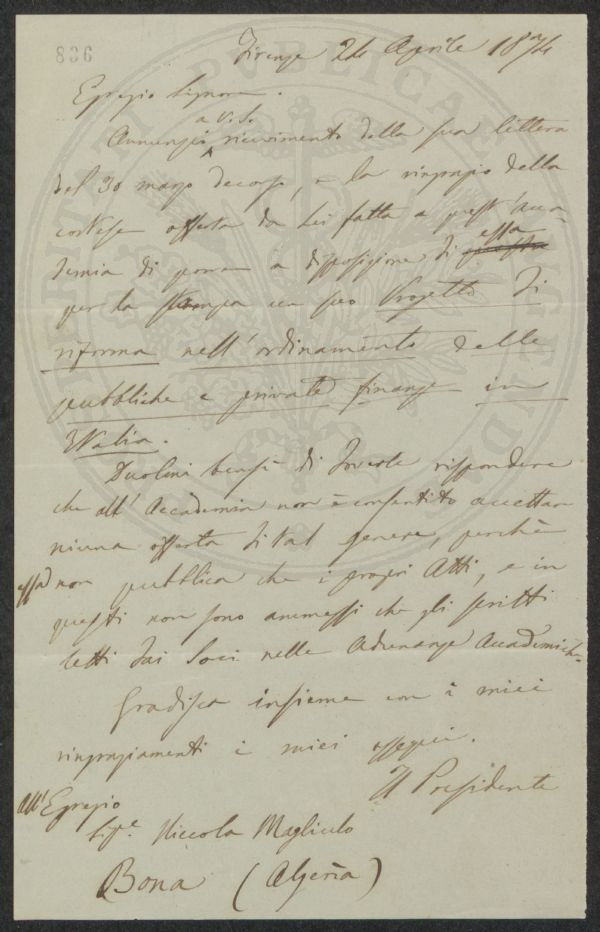 836
Firenze 24 Aprile 1874
Egregio Signore.
a V. S.
Annunzio ricevimento della sua lettera
del 30 marzo decorso, e la ringrazio della
cortese offerta da Lei fatta a quest'Acca-
demia di porre a disposizione di essa questa
per la stampa un suo Progetto di
riforma nell'ordinamento delle
pubbliche e private finanze in
Italia.
Duolmi bensì di doverle rispondere
che all'Accademia non è consentito accettare
niuna offerta di tal genere, perchè
essa non pubblica che i propri Atti, e in
questi non sono ammessi che gli scritti
letti dai Soci nelle Adunanze Accademiche.
Gradisca insieme con i miei
ringraziamenti i miei ossequi.
Il Presidente
All'Egregio
Sig.e Niccola Magliulo
Bona (Algeria)